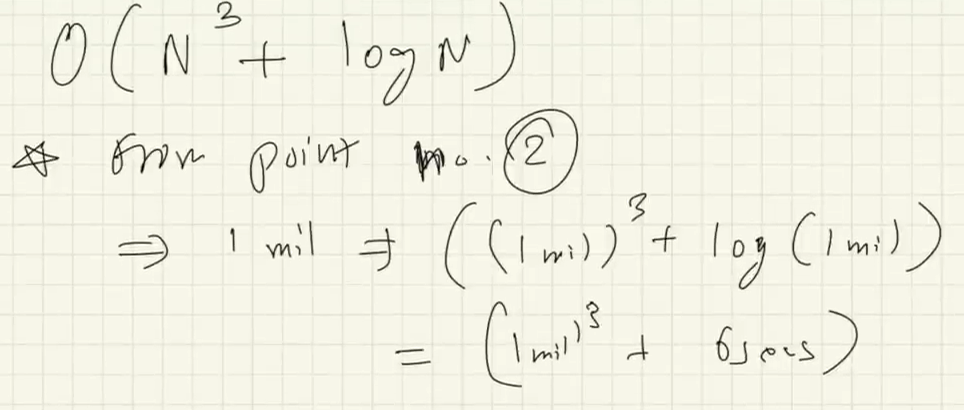 O(N³ + log N)
☆ from point no. ②
⇒ 1 mil ⇒ ((1 mil))³ + log (1 mil))
= (1 mil)³ + 6secs)